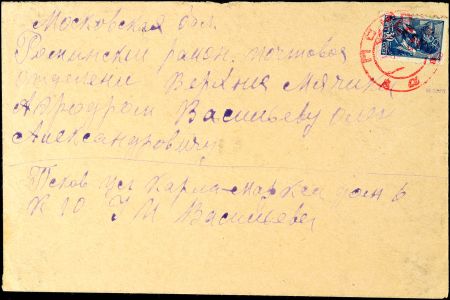 Московская обл.
Раменский район. почтовое
отделени Верхние Мячик
Аэродром Васильеву Олег
Александровичу
Псков ул Карла-Маркса дом 6
К 10 Васильева